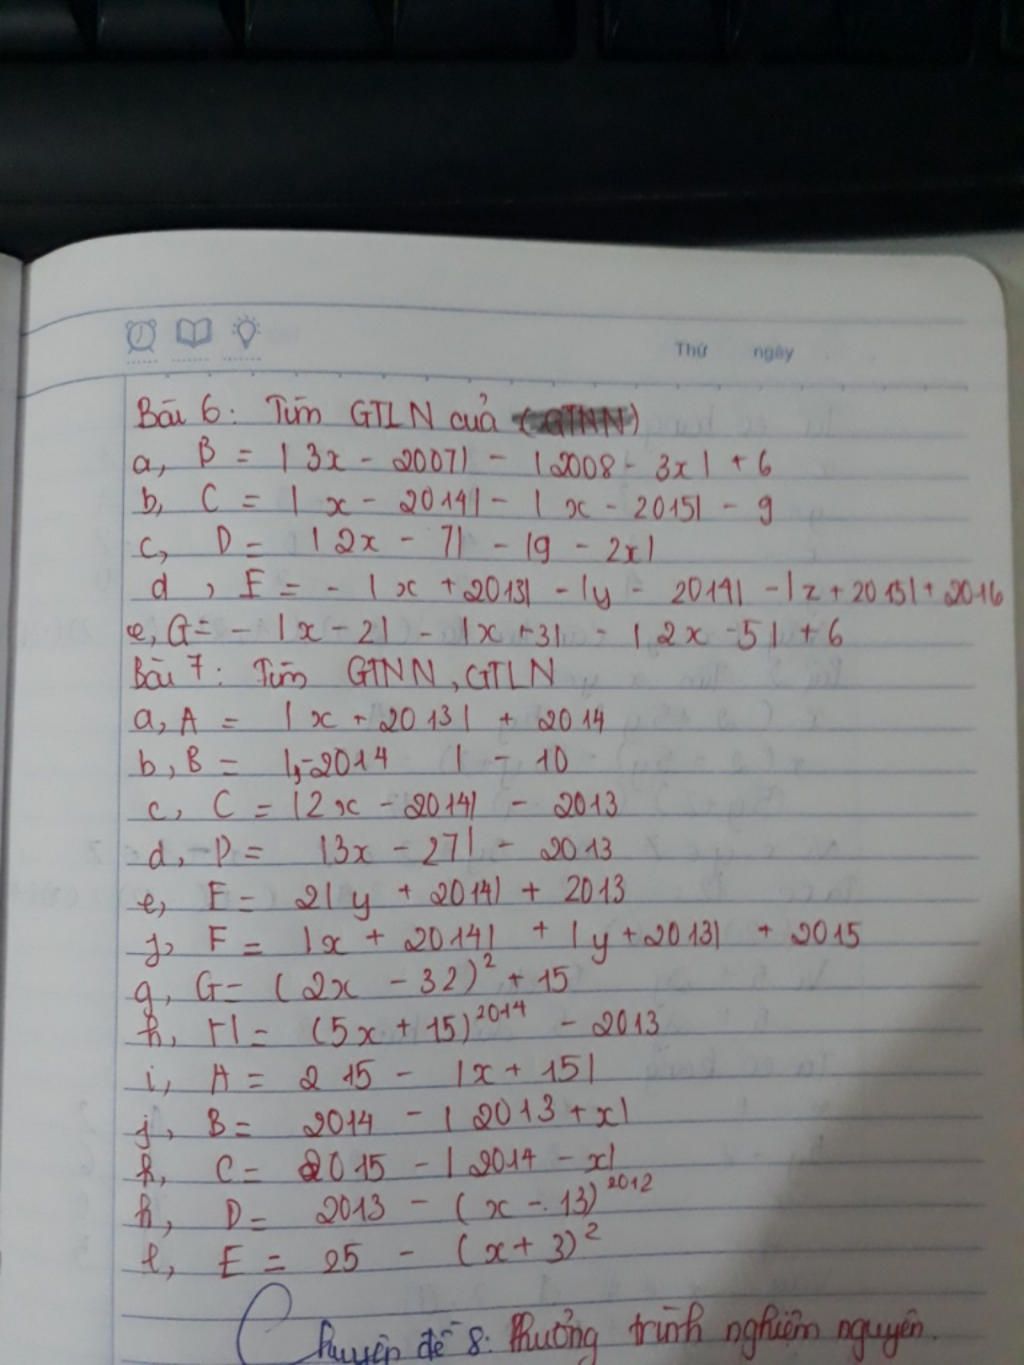 Thứ ngày
Bài 6: Tìm GTLN của (GTNN)
a, B = |3x - 2007| - |2008 - 3x| + 6
b, C = |x - 2014| - |x - 2015| - 9
c, D = |2x - 7| - |9 - 2x|
d, E = - |x + 2013| - |y - 2014| - |z + 2015| + 2016
e, G = - |x - 2| - |x + 3| - |2x - 5| + 6
Bài 7: Tìm GTNN, GTLN
a, A = |x + 2013| + 2014
b, B = | -2014 | - 10
c, C = |2x - 2014| - 2013
d, D = |3x - 27| - 2013
e, E = 2|y + 2014| + 2013
f, F = |x + 2014| + |y + 2013| + 2015
g, G = (2x - 32)² + 15
h, H = (5x + 15)²⁰¹⁴ - 2013
i, A = 215 - |x + 15|
j, B = 2014 - |2013 + x|
k, C = 2015 - |2014 - x|
k, D = 2013 - (x - 13)²⁰¹²
l, E = 25 - (x + 3)²
Chuyên đề 8: Phương trình nghiệm nguyên.